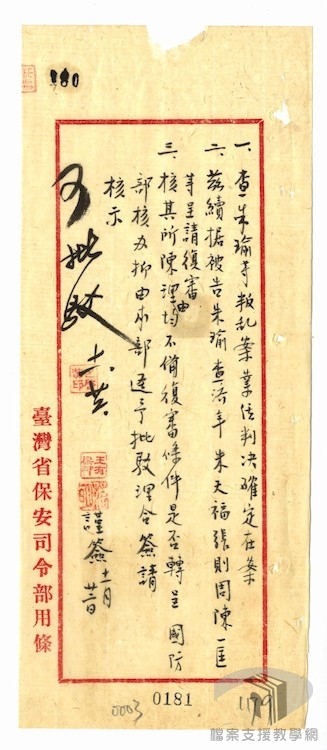 一、查朱瑜等叛乱案業經判决確定在案
二、茲續据被告朱瑜查济年朱天福張則周陳一匡
等呈請復審
三、核其所陳理由均不備復審條件是否轉呈 國防
部核办抑由本部逕予批駁理合簽請
核示
謹簽 十一月廿一日
可批駁
臺灣省保安司令部用條
0181
0003
179
檔案支援教學網